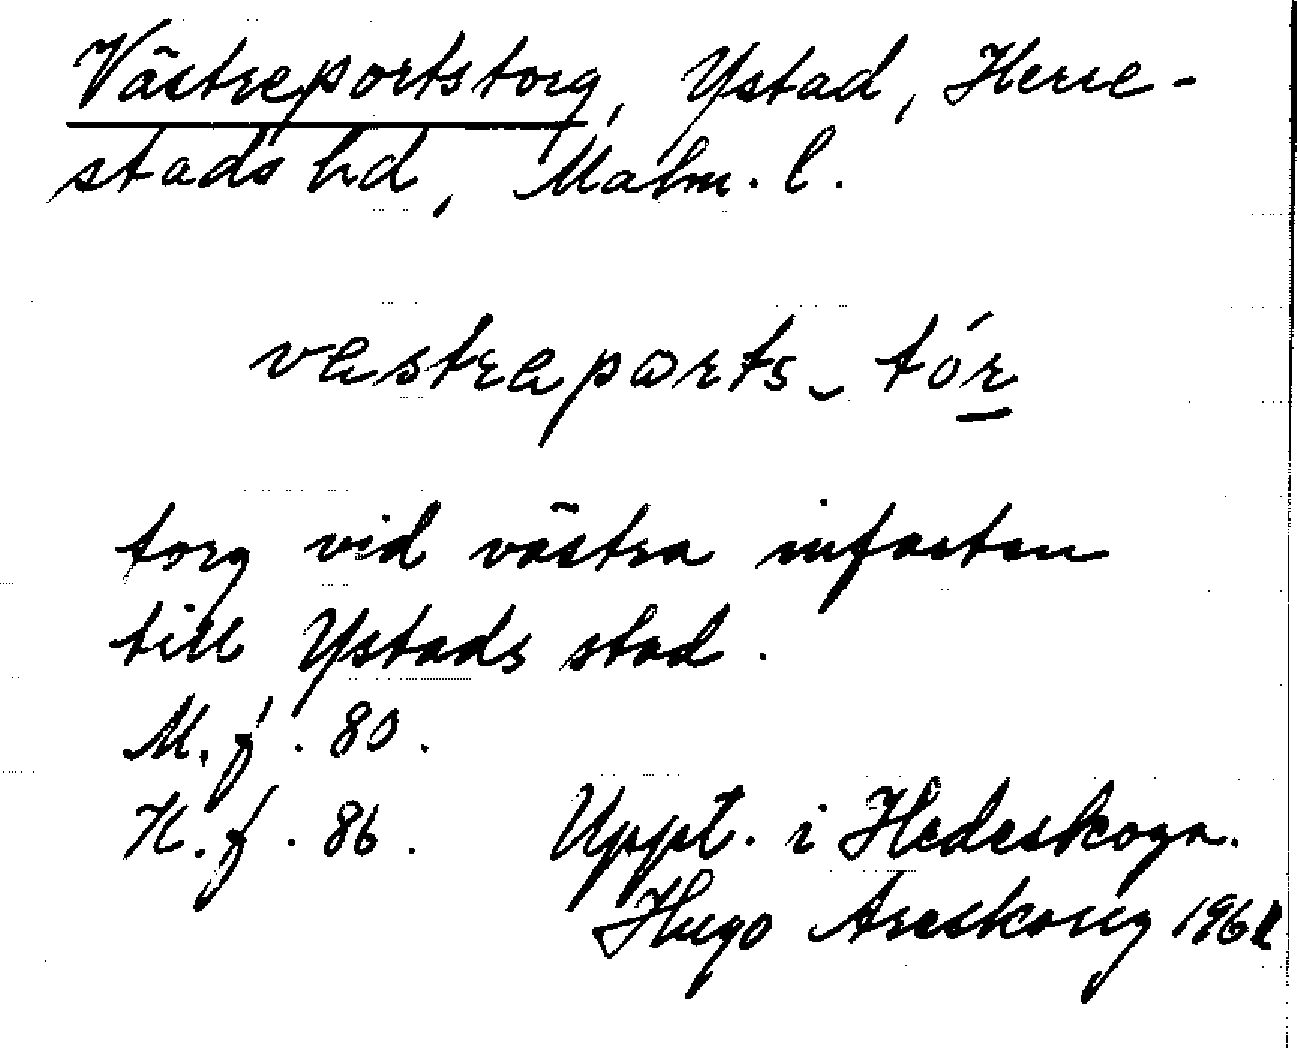 Västreportstorg, Ystad, Herre-
stads hd, Malm. l.
vastraparts- tór
torg vid västra infarten
till Ystads stad.
M. f. 80.
K. f. 86. Uppt. i Hedeskoga.
Hugo Areskoug